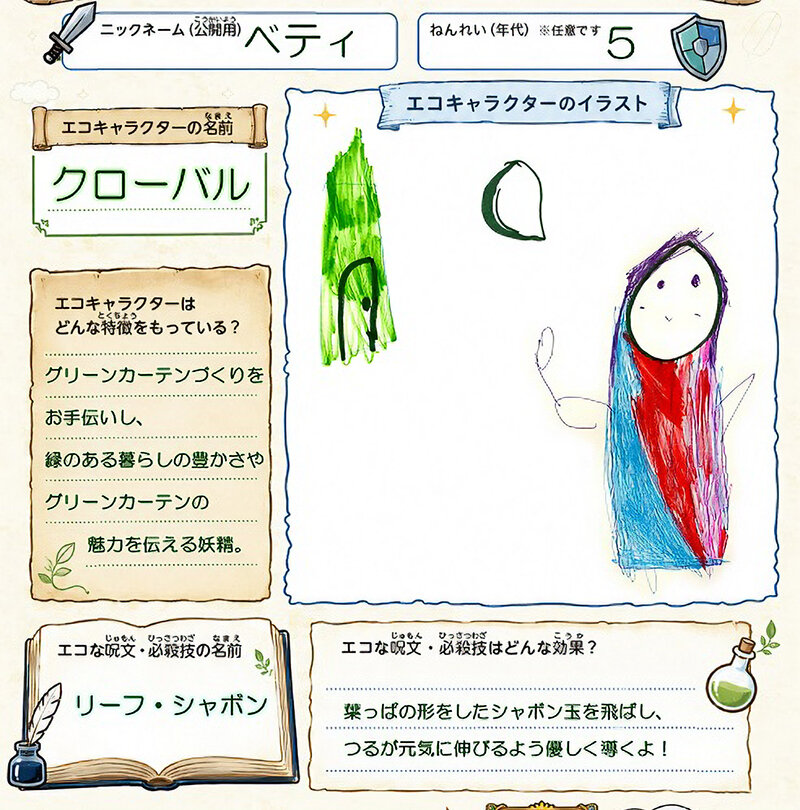 ニックネーム(公開用)
こうかいよう
ベティ
ねんれい(年代) ※任意です
5
エコキャラクターの名前
なまえ
クローバル
エコキャラクターのイラスト
エコキャラクターは
どんな特徴をもっている?
とくちょう
グリーンカーテンづくりを
お手伝いし、
緑のある暮らしの豊かさや
グリーンカーテンの
魅力を伝える妖精。
エコな呪文・必殺技の名前
じゅもん ひっさつわざ なまえ
リーフ・シャボン
エコな呪文・必殺技はどんな効果?
じゅもん ひっさつわざ こうか
葉っぱの形をしたシャボン玉を飛ばし、
つるが元気に伸びるよう優しく導くよ!